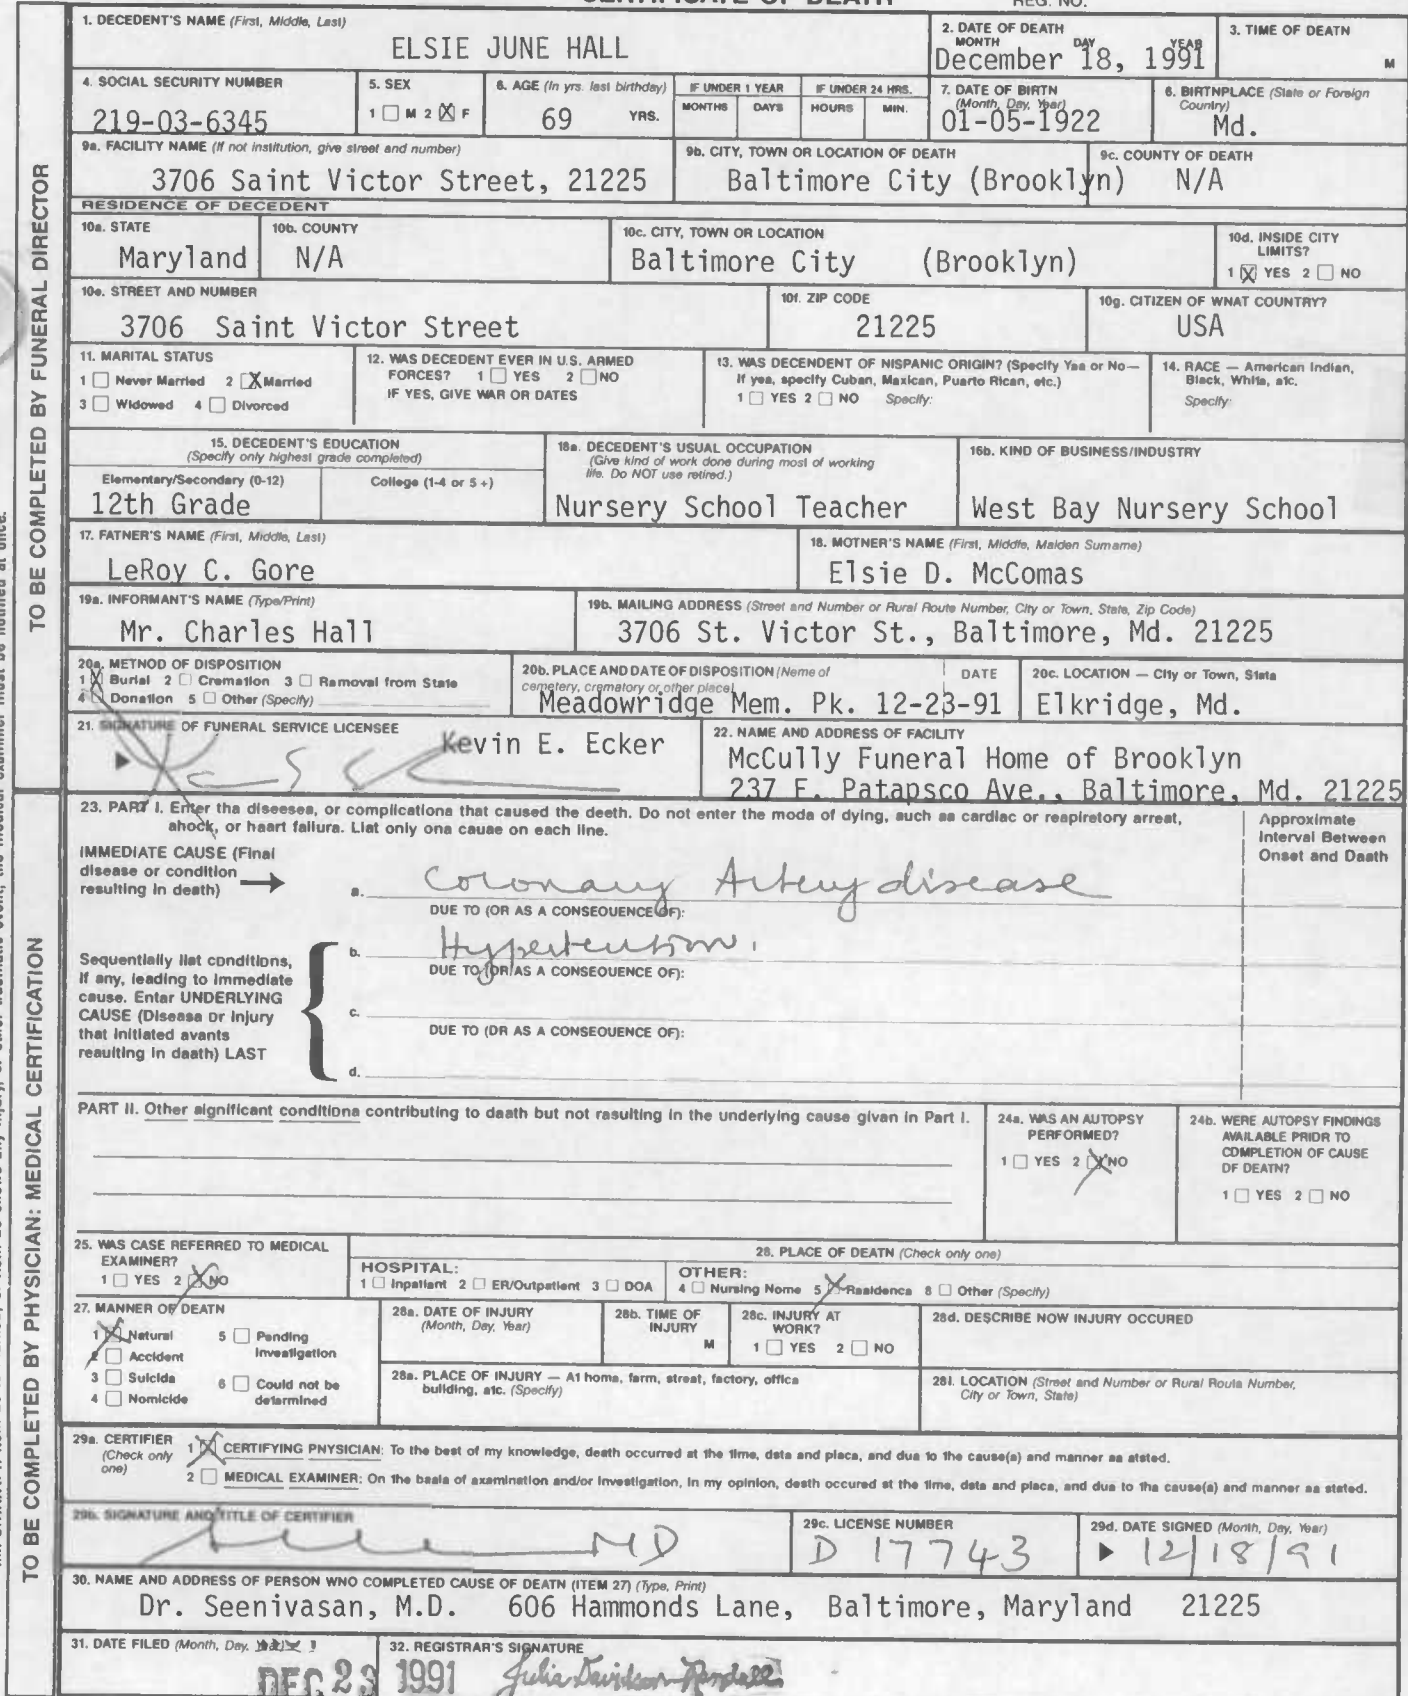 CERTIFICATE OF DEATH REG. NO.
1. DECEDENT'S NAME (First, Middle, Last)
ELSIE JUNE HALL
2. DATE OF DEATH
MONTH DAY YEAR
December 18, 1991
3. TIME OF DEATH
M
4. SOCIAL SECURITY NUMBER
219-03-6345
5. SEX
1 ☐ M 2 ☒ F
6. AGE (In yrs. last birthday)
69 YRS.
IF UNDER 1 YEAR
MONTHS DAYS
IF UNDER 24 HRS.
HOURS MIN.
7. DATE OF BIRTH
(Month, Day, Year)
01-05-1922
8. BIRTHPLACE (State or Foreign
Country)
Md.
9a. FACILITY NAME (If not institution, give street and number)
3706 Saint Victor Street, 21225
9b. CITY, TOWN OR LOCATION OF DEATH
Baltimore City (Brooklyn)
9c. COUNTY OF DEATH
N/A
RESIDENCE OF DECEDENT
10a. STATE
Maryland
10b. COUNTY
N/A
10c. CITY, TOWN OR LOCATION
Baltimore City (Brooklyn)
10d. INSIDE CITY
LIMITS?
1 ☒ YES 2 ☐ NO
10e. STREET AND NUMBER
3706 Saint Victor Street
10f. ZIP CODE
21225
10g. CITIZEN OF WHAT COUNTRY?
USA
11. MARITAL STATUS
1 ☐ Never Married 2 ☒ Married
3 ☐ Widowed 4 ☐ Divorced
12. WAS DECEDENT EVER IN U.S. ARMED
FORCES? 1 ☐ YES 2 ☐ NO
IF YES, GIVE WAR OR DATES
13. WAS DECENDENT OF HISPANIC ORIGIN? (Specify Yes or No—
If yes, specify Cuban, Mexican, Puerto Rican, etc.)
1 ☐ YES 2 ☐ NO Specify:
14. RACE — American Indian,
Black, White, etc.
Specify:
15. DECEDENT'S EDUCATION
(Specify only highest grade completed)
Elementary/Secondary (0-12) College (1-4 or 5+)
12th Grade
16a. DECEDENT'S USUAL OCCUPATION
(Give kind of work done during most of working
life. Do NOT use retired.)
Nursery School Teacher
16b. KIND OF BUSINESS/INDUSTRY
West Bay Nursery School
17. FATHER'S NAME (First, Middle, Last)
LeRoy C. Gore
18. MOTHER'S NAME (First, Middle, Maiden Surname)
Elsie D. McComas
19a. INFORMANT'S NAME (Type/Print)
Mr. Charles Hall
19b. MAILING ADDRESS (Street and Number or Rural Route Number, City or Town, State, Zip Code)
3706 St. Victor St., Baltimore, Md. 21225
20a. METHOD OF DISPOSITION
1 ☒ Burial 2 ☐ Cremation 3 ☐ Removal from State
4 ☐ Donation 5 ☐ Other (Specify)
20b. PLACE AND DATE OF DISPOSITION (Name of
cemetery, crematory or other place) DATE
Meadowridge Mem. Pk. 12-23-91
20c. LOCATION — City or Town, State
Elkridge, Md.
21. SIGNATURE OF FUNERAL SERVICE LICENSEE
Kevin E. Ecker
22. NAME AND ADDRESS OF FACILITY
McCully Funeral Home of Brooklyn
237 E. Patapsco Ave., Baltimore, Md. 21225
23. PART I. Enter the diseases, or complications that caused the death. Do not enter the mode of dying, such as cardiac or respiratory arrest,
shock, or heart failure. List only one cause on each line.
Approximate
Interval Between
Onset and Death
IMMEDIATE CAUSE (Final
disease or condition
resulting in death)
a. Coronary Artery disease
DUE TO (OR AS A CONSEQUENCE OF):
b. Hypertention.
DUE TO (OR AS A CONSEQUENCE OF):
c.
DUE TO (OR AS A CONSEQUENCE OF):
d.
Sequentially list conditions,
if any, leading to immediate
cause. Enter UNDERLYING
CAUSE (Disease or injury
that initiated events
resulting in death) LAST
PART II. Other significant conditions contributing to death but not resulting in the underlying cause given in Part I.
24a. WAS AN AUTOPSY
PERFORMED?
1 ☐ YES 2 ☒ NO
24b. WERE AUTOPSY FINDINGS
AVAILABLE PRIOR TO
COMPLETION OF CAUSE
OF DEATH?
1 ☐ YES 2 ☐ NO
25. WAS CASE REFERRED TO MEDICAL
EXAMINER?
1 ☐ YES 2 ☒ NO
26. PLACE OF DEATH (Check only one)
HOSPITAL:
1 ☐ Inpatient 2 ☐ ER/Outpatient 3 ☐ DOA
OTHER:
4 ☐ Nursing Home 5 ☒ Residence 6 ☐ Other (Specify)
27. MANNER OF DEATH
1 ☒ Natural 5 ☐ Pending
Investigation
2 ☐ Accident
3 ☐ Suicide 6 ☐ Could not be
determined
4 ☐ Homicide
28a. DATE OF INJURY
(Month, Day, Year)
28b. TIME OF
INJURY
M
28c. INJURY AT
WORK?
1 ☐ YES 2 ☐ NO
28d. DESCRIBE HOW INJURY OCCURED
28e. PLACE OF INJURY — At home, farm, street, factory, office
building, etc. (Specify)
28f. LOCATION (Street and Number or Rural Route Number,
City or Town, State)
29a. CERTIFIER
(Check only
one)
1 ☒ CERTIFYING PHYSICIAN: To the best of my knowledge, death occurred at the time, date and place, and due to the cause(s) and manner as stated.
2 ☐ MEDICAL EXAMINER: On the basis of examination and/or investigation, in my opinion, death occured at the time, date and place, and due to the cause(s) and manner as stated.
29b. SIGNATURE AND TITLE OF CERTIFIER
MD
29c. LICENSE NUMBER
D 17743
29d. DATE SIGNED (Month, Day, Year)
12/18/91
30. NAME AND ADDRESS OF PERSON WHO COMPLETED CAUSE OF DEATH (ITEM 27) (Type, Print)
Dr. Seenivasan, M.D. 606 Hammonds Lane, Baltimore, Maryland 21225
31. DATE FILED (Month, Day, Year)
DEC 23 1991
32. REGISTRAR'S SIGNATURE
Julia Davidson-Randall
TO BE COMPLETED BY FUNERAL DIRECTOR
TO BE COMPLETED BY PHYSICIAN: MEDICAL CERTIFICATION